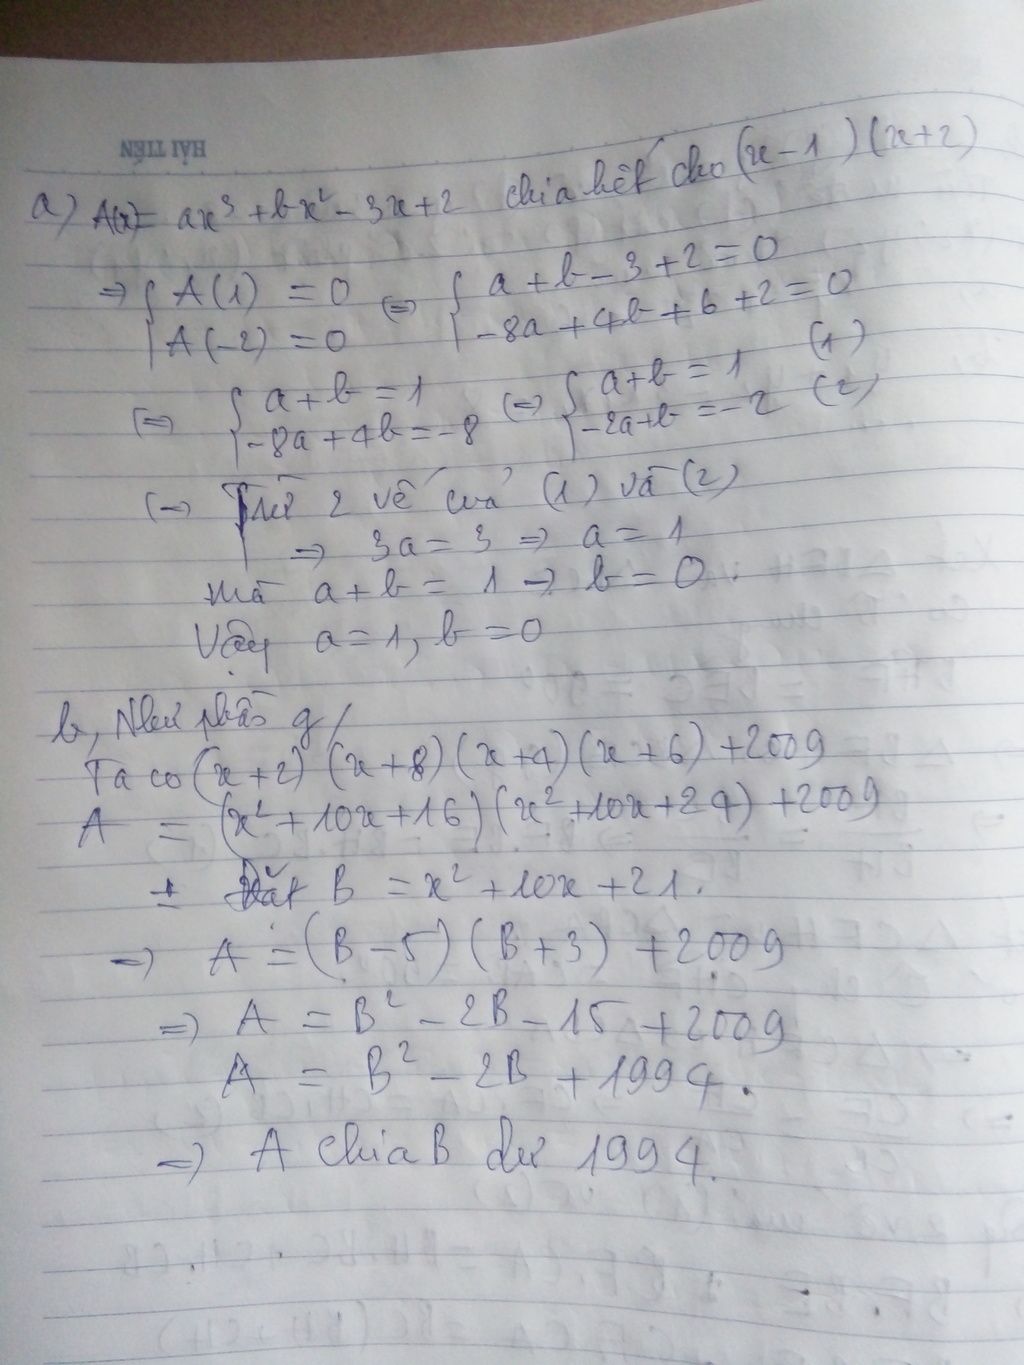 HẢI TIẾN
a) A(x)= ax³ + bx² - 3x + 2 chia hết cho (x - 1) (x + 2)
=> { A(1) = 0 <=> { a + b - 3 + 2 = 0
A(-2) = 0 -8a + 4b + 6 + 2 = 0
<=> { a + b = 1 <=> { a + b = 1 (1)
-8a + 4b = -8 -2a + b = -2 (2)
Trừ 2 vế của (1) và (2)
=> 3a = 3 => a = 1
mà a + b = 1 -> b = 0.
Vậy a = 1, b = 0
b, Như phần g/
Ta có (x + 2) (x + 8) (x + 4) (x + 6) + 2009
A = (x² + 10x + 16) (x² + 10x + 24) + 2009
+ Đặt B = x² + 10x + 21.
=> A = (B - 5) (B + 3) + 2009
=> A = B² - 2B - 15 + 2009
A = B² - 2B + 1994.
=> A chia B dư 1994.